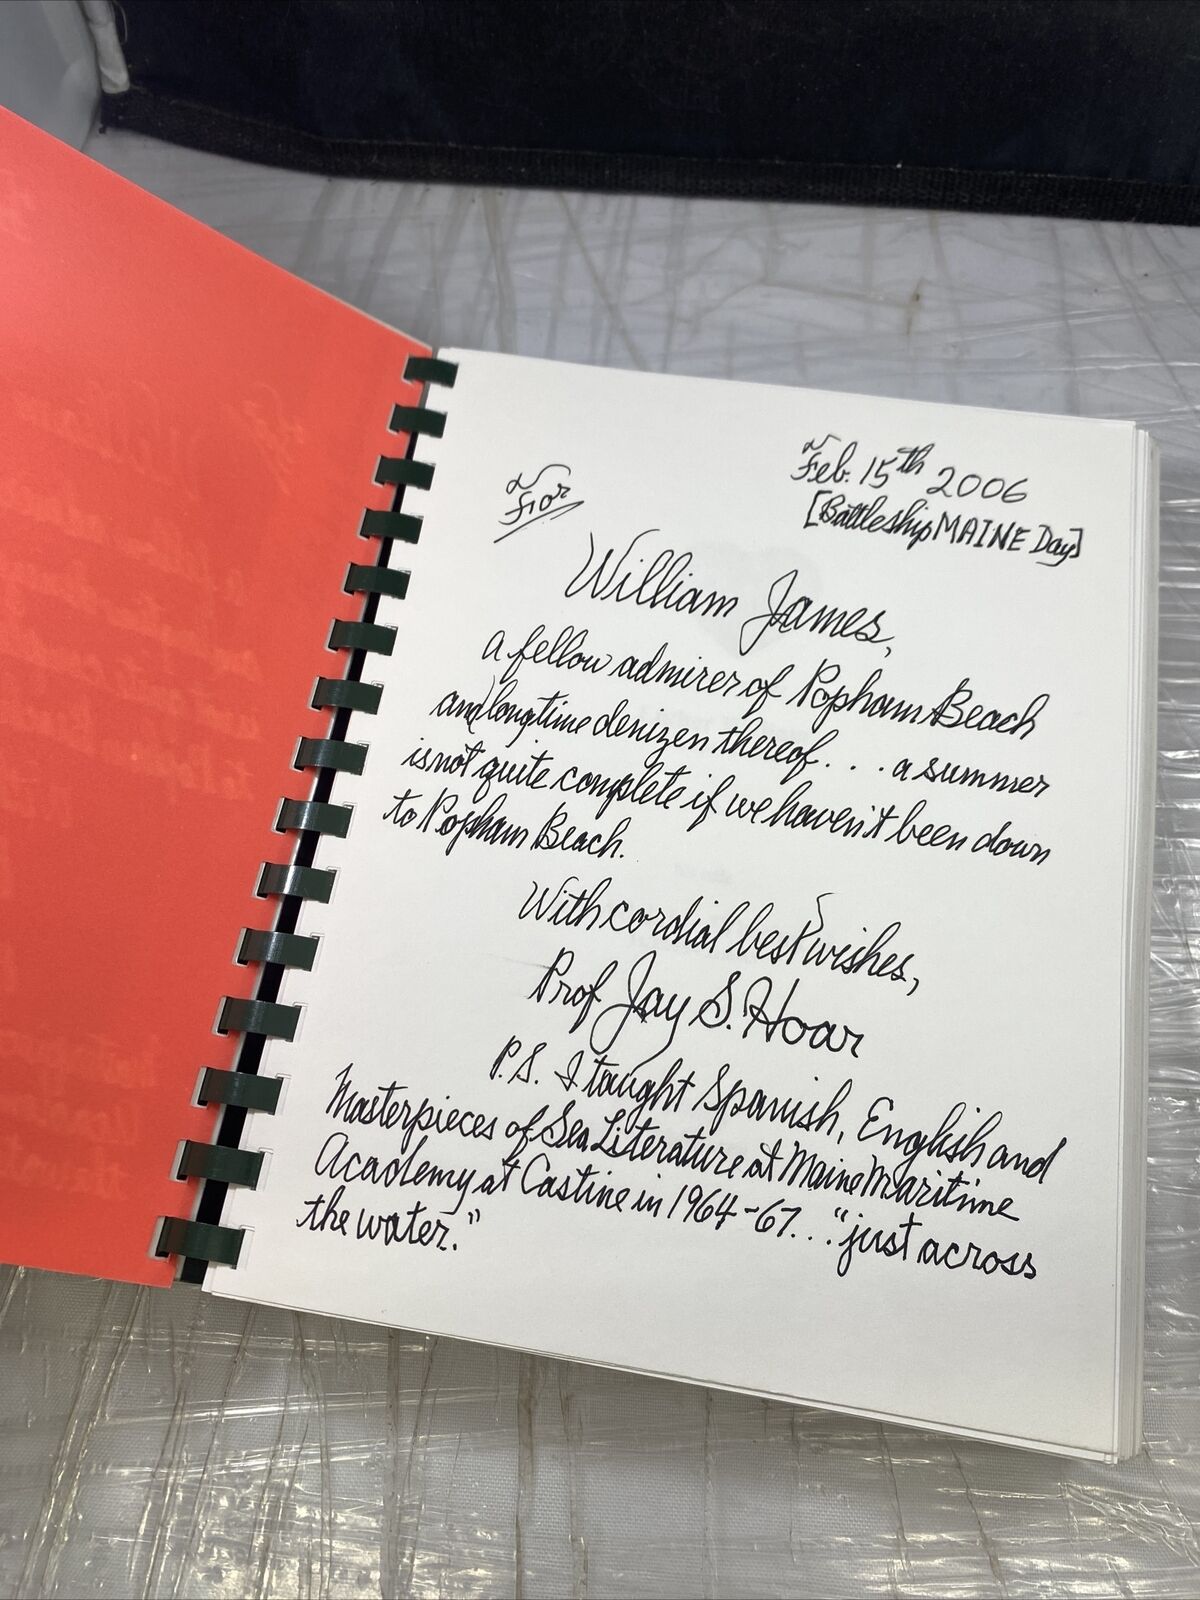 Feb. 15th 2006
[Battleship MAINE Day]
For
William James,
a fellow admirer of Popham Beach
and longtime denizen thereof... a summer
is not quite complete if we haven't been down
to Popham Beach.
With cordial best wishes,
Prof Jay S. Hoar
P.S. I taught Spanish, English and
Masterpieces of Sea Literature at Maine Maritime
Academy at Castine in 1964-67... "just across
the water."